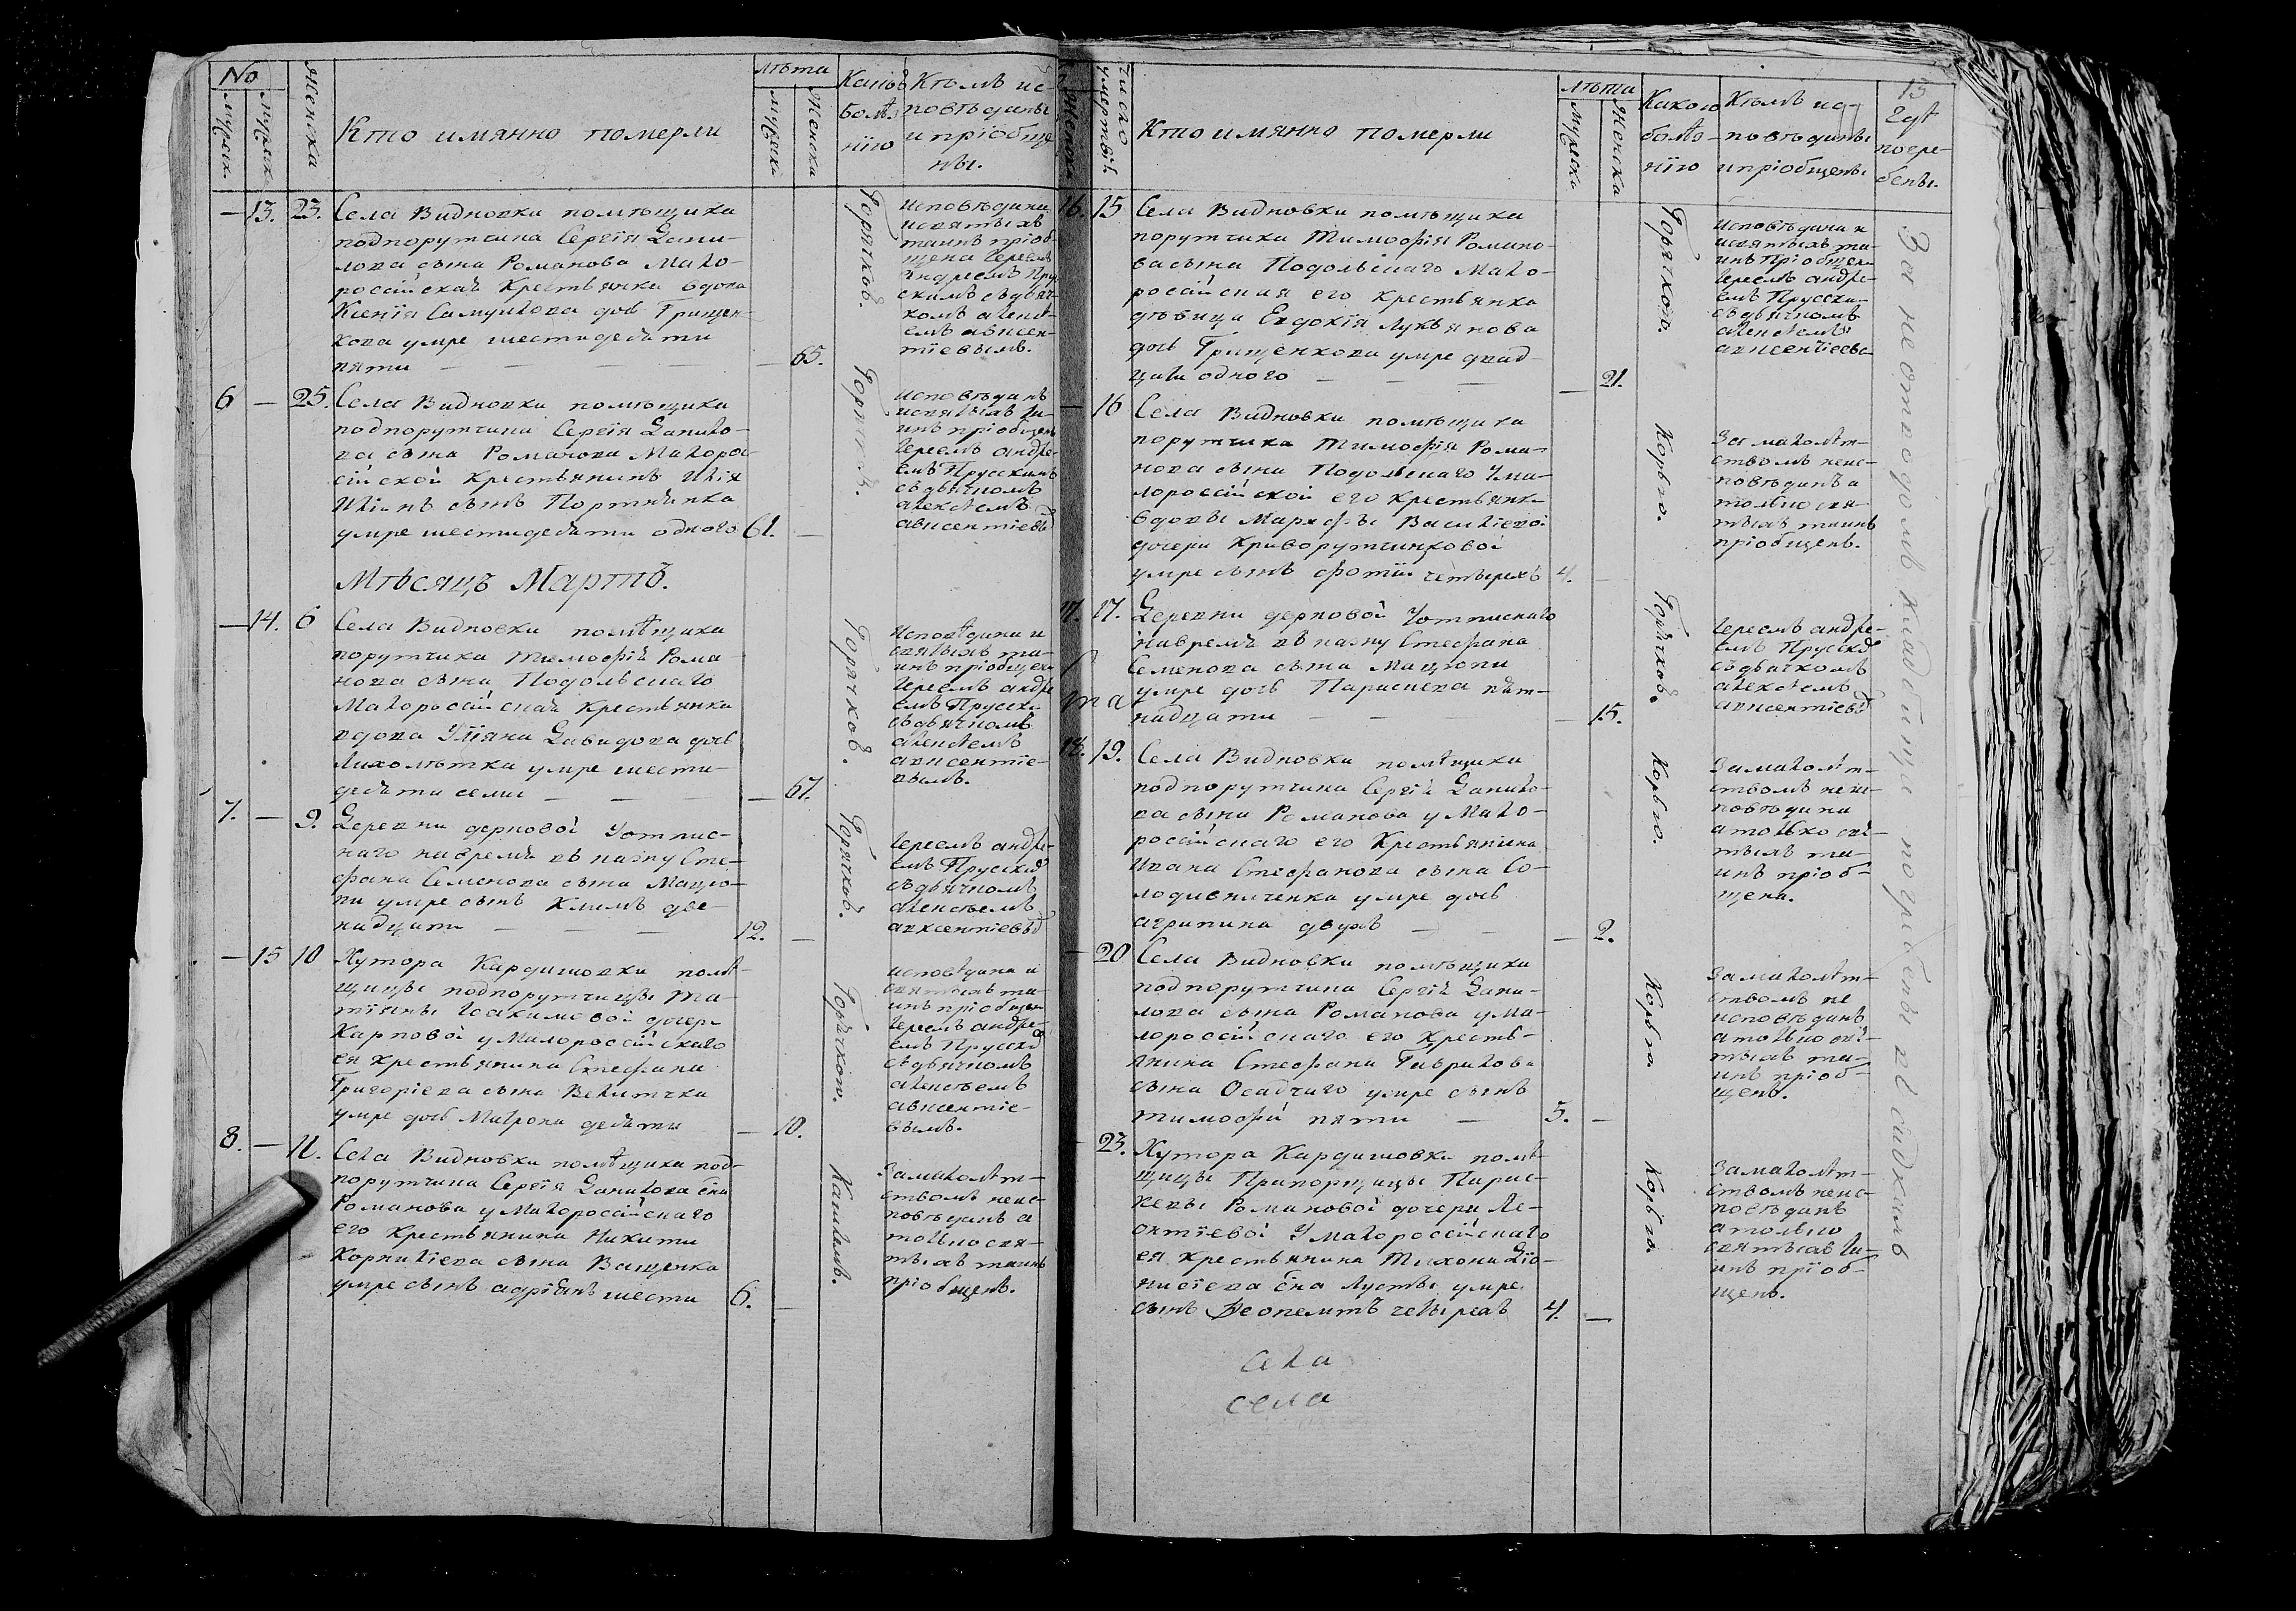 No
Мужск.
Мужск.
Женска
Кто имянно померли
лѣта
Мужска
Женска
Какою
болѣ
нїю
Кѣмъ ис-
повѣданы
и прїобще
ны.
— 13. 23. Села Видновки помѣщика
подпорутчика Сергїя Дани-
лова сына Романова Мало-
россїйская крестьянка вдова
Ксенїя Самуилова дочь Грищен-
кова умре шестидесяти
пяти — — — — 65.
Горячкою.
исповѣдана
и святыхъ
таинъ прїоб-
щена Іереемъ
Андреемъ Пру
скимъ съ дьяч-
комъ алекс-
емъ авксен-
тїевымъ.
6 — 25. Села Видновки помѣщика
подпорутчика Сергїя Данило-
ва сына Романова Малоро-
сїйской крестьянинъ Илїя
сынъ
умре шестидесяти одного 61. —
Горячкой.
исповѣданъ
и святыхъ та-
инъ прїобщенъ
Іереемъ андре-
емъ Прускимъ
съ дьячкомъ
алексѣемъ
авксентїевы
Мѣсяцъ Мартъ.
— 14. 6 Села Видновки помѣщика
порутчика Тимофѣя Рома-
нова сына Подольскаго
Малороссїйская крестьянка
вдова Улїяна Давидова дочь
Лихолѣтка умре шести-
десяти семи — — — 67.
Горячкою.
Исповѣдана и
святыхъ та-
инъ прїобщена
Іереемъ андре
емъ Пруски
съ дьячкомъ
алексѣемъ
авксентїе-
вымъ.
7. — 9. Деревни дерновой Уотпис-
наго на время въ казну Сте-
фана Семенова сына Мацю-
пи умре сынъ Климъ две-
надцати — — — 12. —
Горячкою.
Іереемъ андре-
емъ Прускимъ
съ дьячкомъ
алексѣемъ
авксентїевы
— 15 10 Хутора Кардишовки помѣ-
щицы подпорутчицы Та-
тїяны Іоакимовой дочери
Карповой у Малороссїйскаго
ея крестьянина Стефана
Григорїева сына Величка
умре дочь Матрона десяти — 10.
Горячкою.
исповѣдана и
святыхъ та-
инъ прїобщен
Іереемъ андре-
емъ Пруски
съ дьячкомъ
алексѣемъ
авксентїе-
вымъ.
8. — 11. Села Видновки помѣщика под-
порутчика Сергїя Данилова сна
Романова у Малороссїйскаго
его крестьянина Никити
Корнилїева сына Ващенка
умре сынъ адрїянъ шести 6. —
Кашлемъ.
За малолѣт-
ствомъ неис-
повѣданъ а
только свя-
тыхъ таинъ
прїобщенъ.
Женска
число
умертвїя
Кто имянно померли
лѣта
Мужска
Женска
Какою
болѣ-
нїю
Кѣмъ ис-
повѣданы
и прїобщены
13
Где
погре-
бены.
16. 15 Села Видновки помѣщика
порутчика Тимофѣя Романо-
ва сына Подольскаго Мало-
россїйская его крестьянка
дѣвица Евдокїя Лукьянова
дочь Грищенкова умре двад-
цати одного — — — — 21.
Горячкою.
Исповѣдана и
святыхъ та-
инъ прїобщен
Іереемъ андре-
емъ Пруски-
съ дьячкомъ
алексѣемъ
авксентїевы
— 16 Села Видновки помѣщика
порутчика Тимофѣя Рома-
нова сына Подольскаго У ма-
лороссїйской его крестьянк
вдовы Марфы Василїевой
дочери Криворутченковой
умре сынъ Фотїй четырехъ 4. —
Корью.
За малолѣт-
ствомъ неис-
повѣданъ а
только свя-
тыхъ таинъ
прїобщенъ.
17. 17. Деревни дерновой Уотписнаго
на время въ казну Стефана
Семенова сына Мацюпи
умре дочь Парискева пят-
надцати — — — 15.
та
Горячкою.
Іереемъ андре-
емъ Пруски
съ дьячкомъ
алексѣемъ
авксентїевы
18. 19. Села Видновки помѣщика
подпорутчика Сергїя Данило-
ва сына Романова у Мало-
россїйскаго его крестьянина
Ивана Стефанова сына Со-
лодивниченка умре дочь
агрипина двухъ — — — 2.
Корью.
За малолѣт-
ствомъ неис-
повѣдана
а только свя-
тыхъ та-
инъ прїоб-
щена.
— 20 Села Видновки помѣщика
подпорутчика Сергїя Дани-
лова сына Романова у Ма-
лороссїйскаго его кресть-
янина Стефана Гаврилова
сына Осадчаго умре сынъ
тимофѣй пяти — 5. —
Корью.
За малолѣт-
ствомъ не
исповѣданъ
а только свя-
тыхъ та-
инъ прїоб-
щенъ.
— 23. Хутора Кардишовки помѣ-
щицы Прапорщицы Парис-
кевы Романовой дочери Ле-
онтїевой У малороссїйскаго
ея крестьянина Тихона Дїо-
нисїева сна Лусты умре
сынъ Феопемптъ четырехъ 4. —
Корью.
За малолѣт-
ствомъ неис-
повѣданъ
а только
святыхъ та-
инъ прїоб-
щенъ.
За неотводомъ кладбища погребены въ
села
села